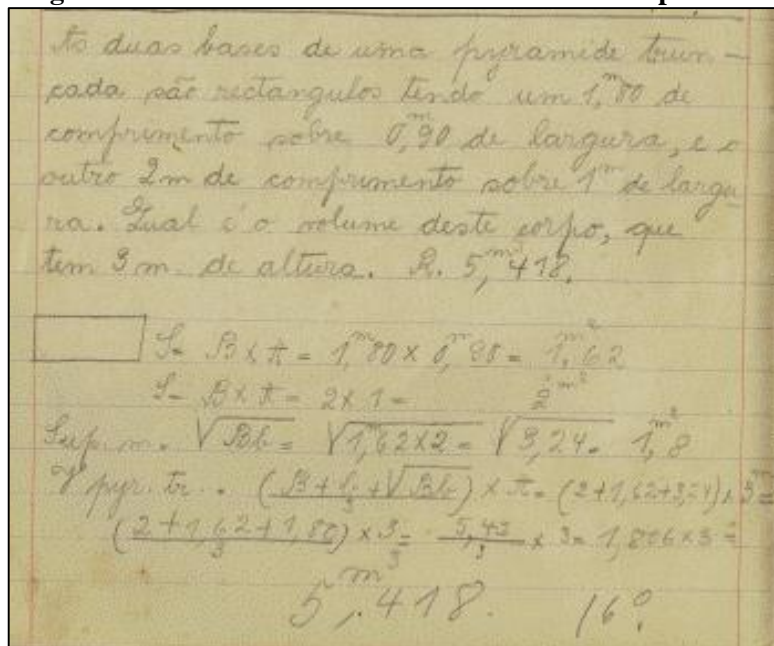 As duas bases de uma pyramide trun-
cada são rectangulos tendo um 1,ᵐ80 de
comprimento sobre 0,ᵐ90 de largura, e o
outro 2m de comprimento sobre 1ᵐ de largu
ra. Qual é o volume deste corpo, que
tem 3 m. de altura. R. 5,ᵐ³418.
S= B x A = 1,ᵐ80 x 0,ᵐ90 = 1,ᵐ²62
S= B x A = 2 x 1 = 2 ᵐ²
Sup. m. √Bb = √1,62x2 = √3,24 = 1,ᵐ²8
V pyr. tr. = (B+b+√Bb)/3 x A = (2+1,62+3,24) x 3ᵐ =
(2+1,62+1,80)/3 x 3 = 5,42/3 x 3 = 1,806 x 3 =
5,ᵐ³418. 16º